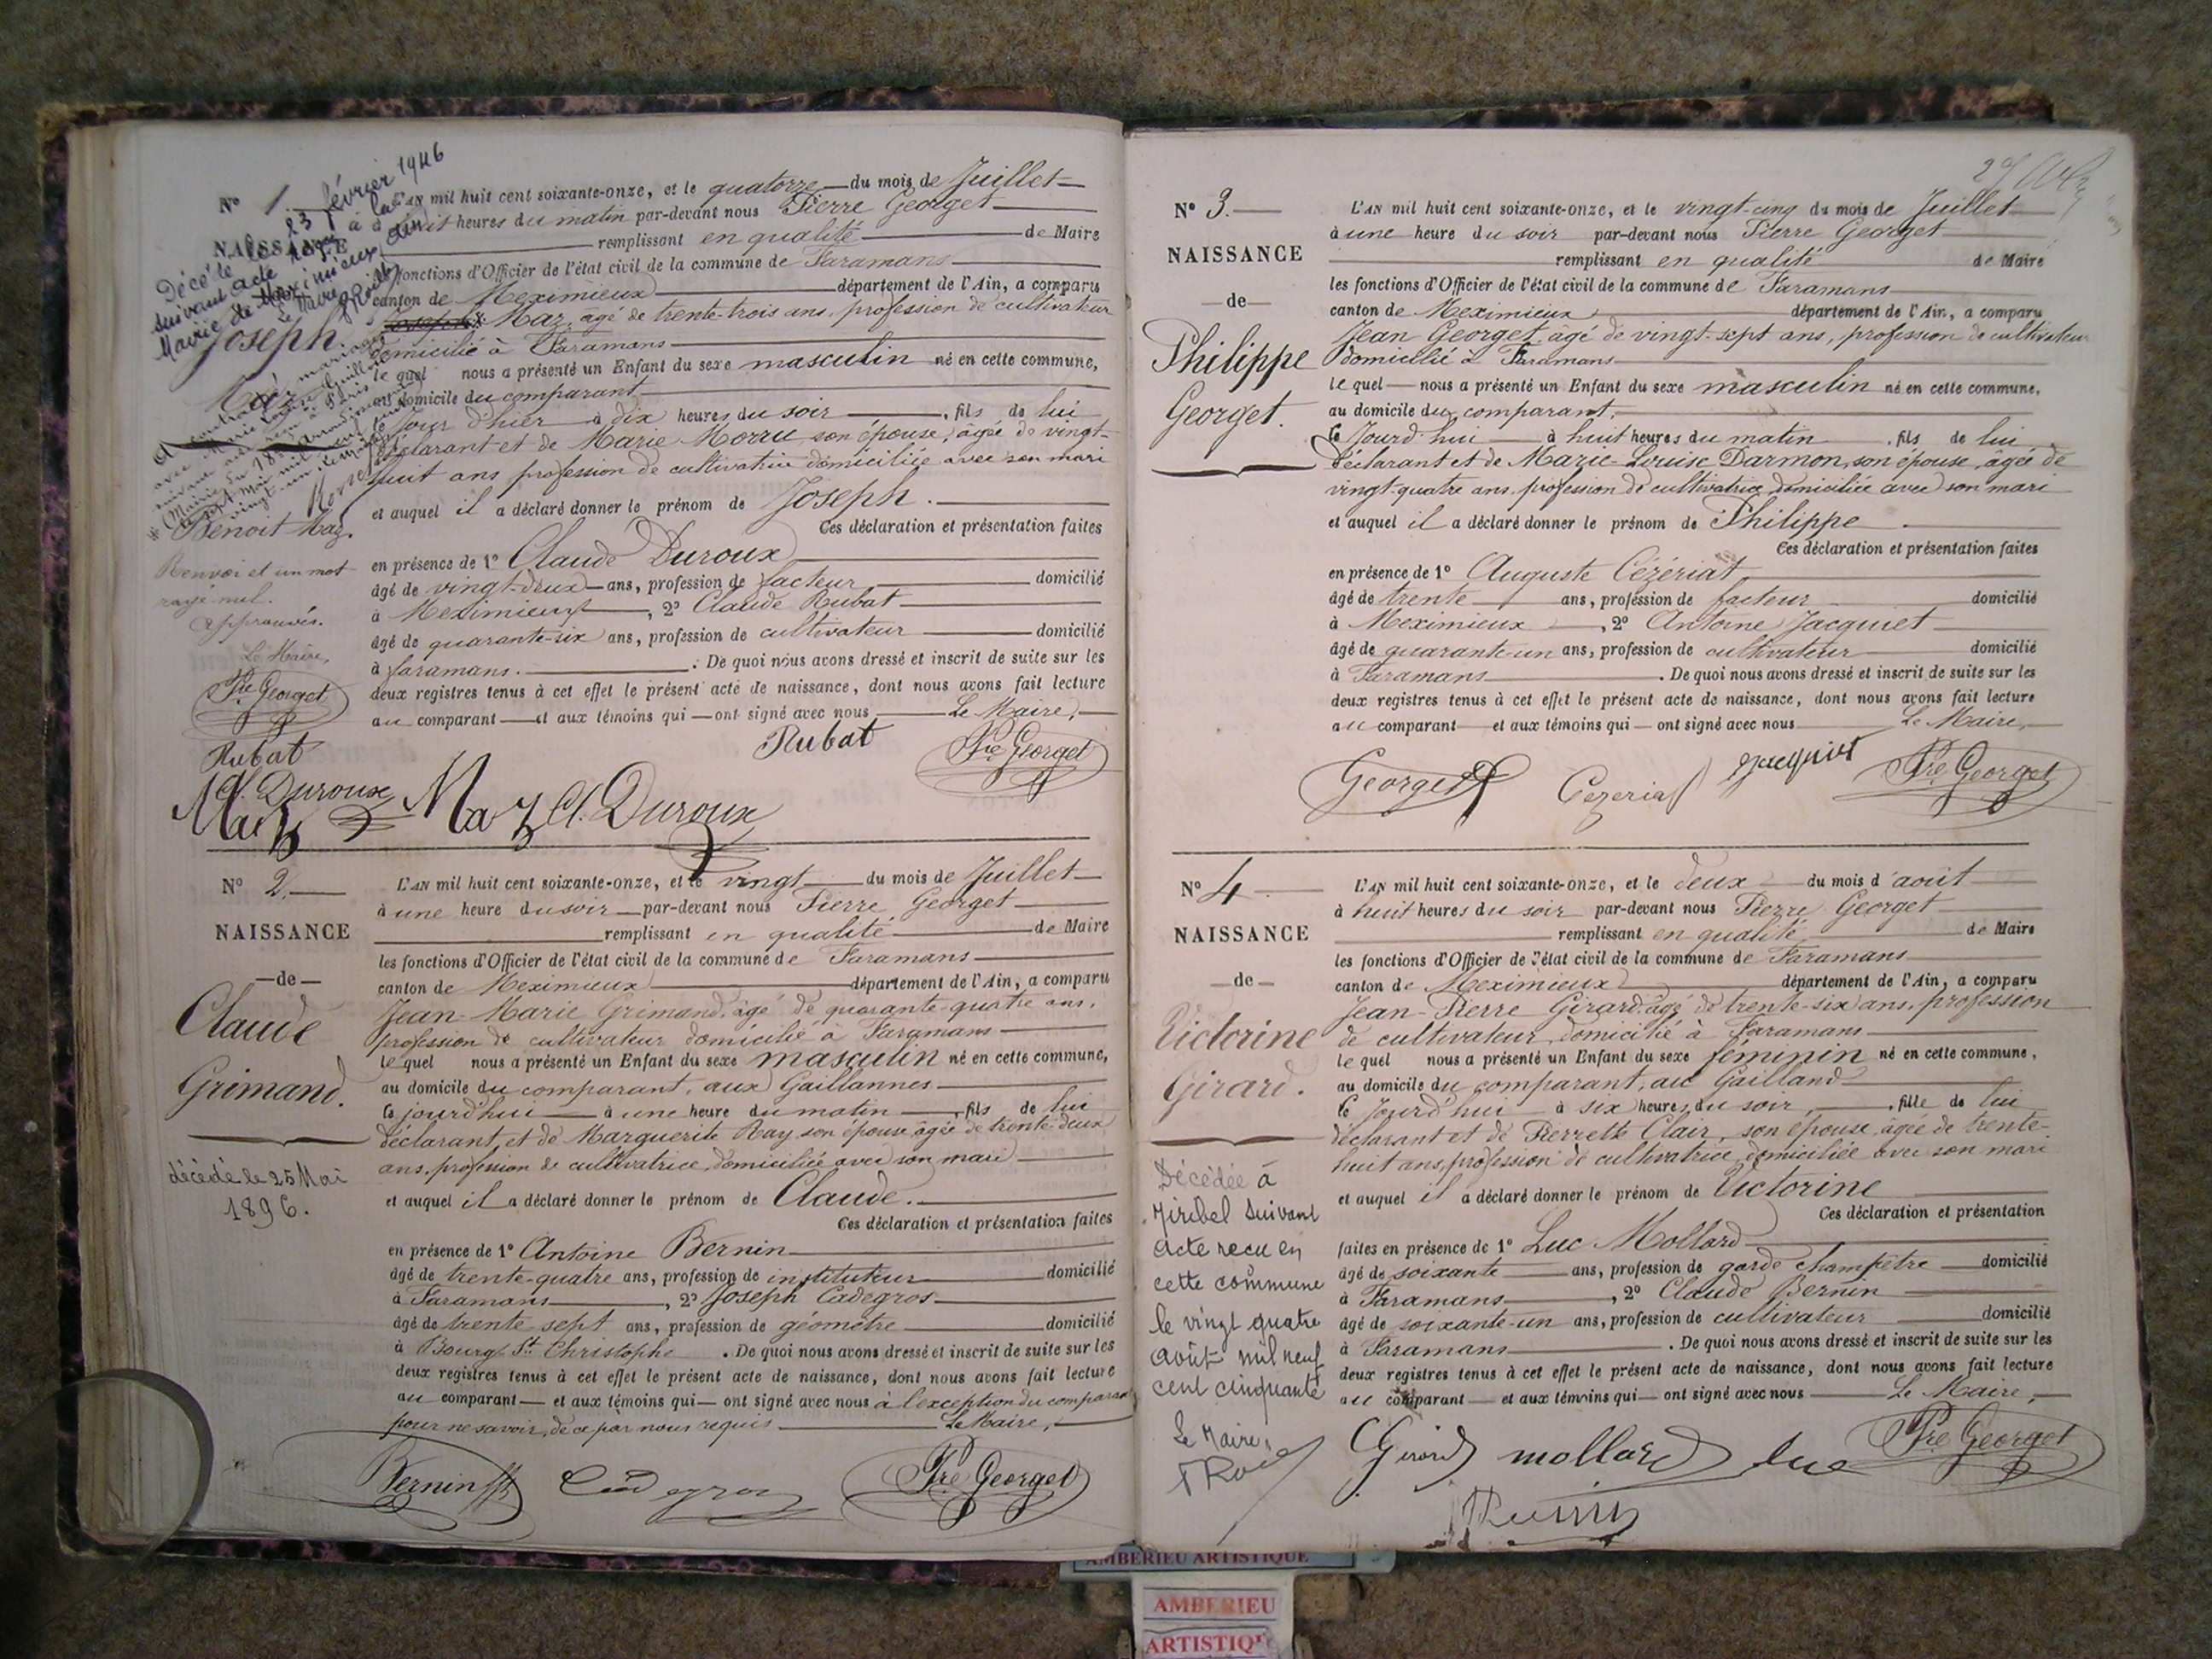 Nº 1. L'AN mil huit cent soixante-onze, et le quatorze du mois de Juillet
heures du matin par-devant nous Pierre Georget
NAISSANCE
remplissant en qualité de Maire
fonctions d'Officier de l'état civil de la commune de Faramans
canton de Meximieux département de l'Ain, a comparu
Maz, âgé de trente-trois ans, profession de cultivateur
domicilié à Faramans
le quel nous a présenté un Enfant du sexe masculin né en cette commune,
au domicile du comparant
le Jour d'hier à dix heures du soir, fils de lui
déclarant et de Marie Morru son épouse, âgée de vingt-
huit ans profession de cultivatrice domiciliée avec son mari
et auquel il a déclaré donner le prénom de Joseph.
Ces déclaration et présentation faites
en présence de 1º Claude Duroux
âgé de vingt-deux ans, profession de facteur domicilié
à Meximieux, 2º Claude Rubat
âgé de quarante-six ans, profession de cultivateur domicilié
à Faramans. De quoi nous avons dressé et inscrit de suite sur les
deux registres tenus à cet effet le présent acte de naissance, dont nous avons fait lecture
au comparant et aux témoins qui ont signé avec nous Le Maire,
Joseph.
Maz
23 février 1946
Décédé le
suivant acte
Mairie de Meximieux
Le Maire
* Benoit Maz.
Renvoi et un mot
rayé nul.
Approuvés.
Le Maire,
Pre Georget
Rubat
Cl. Duroux
Maz
Rubat
Pre Georget
Maz Cl. Duroux
Nº 2. L'AN mil huit cent soixante-onze, et le vingt du mois de Juillet
à une heure du soir par-devant nous Pierre Georget
NAISSANCE
remplissant en qualité de Maire
les fonctions d'Officier de l'état civil de la commune de Faramans
—de—
canton de Meximieux département de l'Ain, a comparu
Claude
Grimand.
Jean-Marie Grimand, âgé de quarante-quatre ans,
profession de cultivateur domicilié à Faramans
le quel nous a présenté un Enfant du sexe masculin né en cette commune,
au domicile du comparant, aux Gaillannes
ce jourd'hui à une heure du matin, fils de lui
déclarant, et de Marguerite Ray son épouse âgée de trente-deux
ans, profession de cultivatrice, domiciliée avec son mari
et auquel il a déclaré donner le prénom de Claude.
Ces déclaration et présentation faites
en présence de 1º Antoine Bernin
âgé de trente-quatre ans, profession de instituteur domicilié
à Faramans, 2º Joseph Cadegros
âgé de trente sept ans, profession de géomètre domicilié
à Bourg St Christophe. De quoi nous avons dressé et inscrit de suite sur les
deux registres tenus à cet effet le présent acte de naissance, dont nous avons fait lecture
au comparant — et aux témoins qui — ont signé avec nous à l'exception du comparant
pour ne savoir, de ce par nous requis Le Maire,
décédé le 25 Mai
1896.
Bernin
Cadegros
Pre Georget
Nº 3. L'AN mil huit cent soixante-onze, et le vingt-cinq du mois de Juillet
à une heure du soir par-devant nous Pierre Georget
NAISSANCE
remplissant en qualité de Maire
les fonctions d'Officier de l'état civil de la commune de Faramans
—de—
canton de Meximieux département de l'Ain, a comparu
Philippe
Georget.
Jean Georget, âgé de vingt-sept ans, profession de cultivateur
domicilié à Faramans
le quel — nous a présenté un Enfant du sexe masculin né en cette commune,
au domicile du comparant,
ce Jourd'hui à huit heures du matin, fils de lui
déclarant et de Marie-Louise Darmon, son épouse, âgée de
vingt-quatre ans, profession de cultivatrice domiciliée avec son mari
et auquel il a déclaré donner le prénom de Philippe
Ces déclaration et présentation faites
en présence de 1º Auguste Cézériat
âgé de trente ans, profession de facteur domicilié
à Meximieux, 2º Antoine Jacquet
âgé de quarante-un ans, profession de cultivateur domicilié
à Faramans. De quoi nous avons dressé et inscrit de suite sur les
deux registres tenus à cet effet le présent acte de naissance, dont nous avons fait lecture
au comparant — et aux témoins qui — ont signé avec nous Le Maire,
Georget
Cezeriat
Pre Georget
Nº 4. L'AN mil huit cent soixante-onze, et le deux du mois d'août
à huit heures du soir par-devant nous Pierre Georget
NAISSANCE
remplissant en qualité de Maire
les fonctions d'Officier de l'état civil de la commune de Faramans
—de—
canton de Meximieux département de l'Ain, a comparu
Victorine
Girard.
Jean-Pierre Girard, âgé de trente-six ans, profession
de cultivateur, domicilié à Faramans
le quel nous a présenté un Enfant du sexe féminin né en cette commune,
au domicile du comparant, au Gailland
ce Jourd'hui à six heures du soir, fille de lui
déclarant et de Pierrette Clair, son épouse, âgée de trente-
huit ans, profession de cultivatrice, domiciliée avec son mari
et auquel il a déclaré donner le prénom de Victorine
Ces déclaration et présentation
faites en présence de 1º Luc Mollard
âgé de soixante ans, profession de garde champêtre domicilié
à Faramans, 2º Claude Bernin
âgé de soixante-un ans, profession de cultivateur domicilié
à Faramans. De quoi nous avons dressé et inscrit de suite sur les
deux registres tenus à cet effet le présent acte de naissance, dont nous avons fait lecture
au comparant — et aux témoins qui — ont signé avec nous Le Maire,
Décédée à
Miribel suivant
acte reçu en
cette commune
le vingt quatre
août mil neuf
cent cinquante
Le Maire,
Girard mollard luc
Pre Georget
AMBERIEU ARTISTIQUE
AMBERIEU
ARTISTIQUE